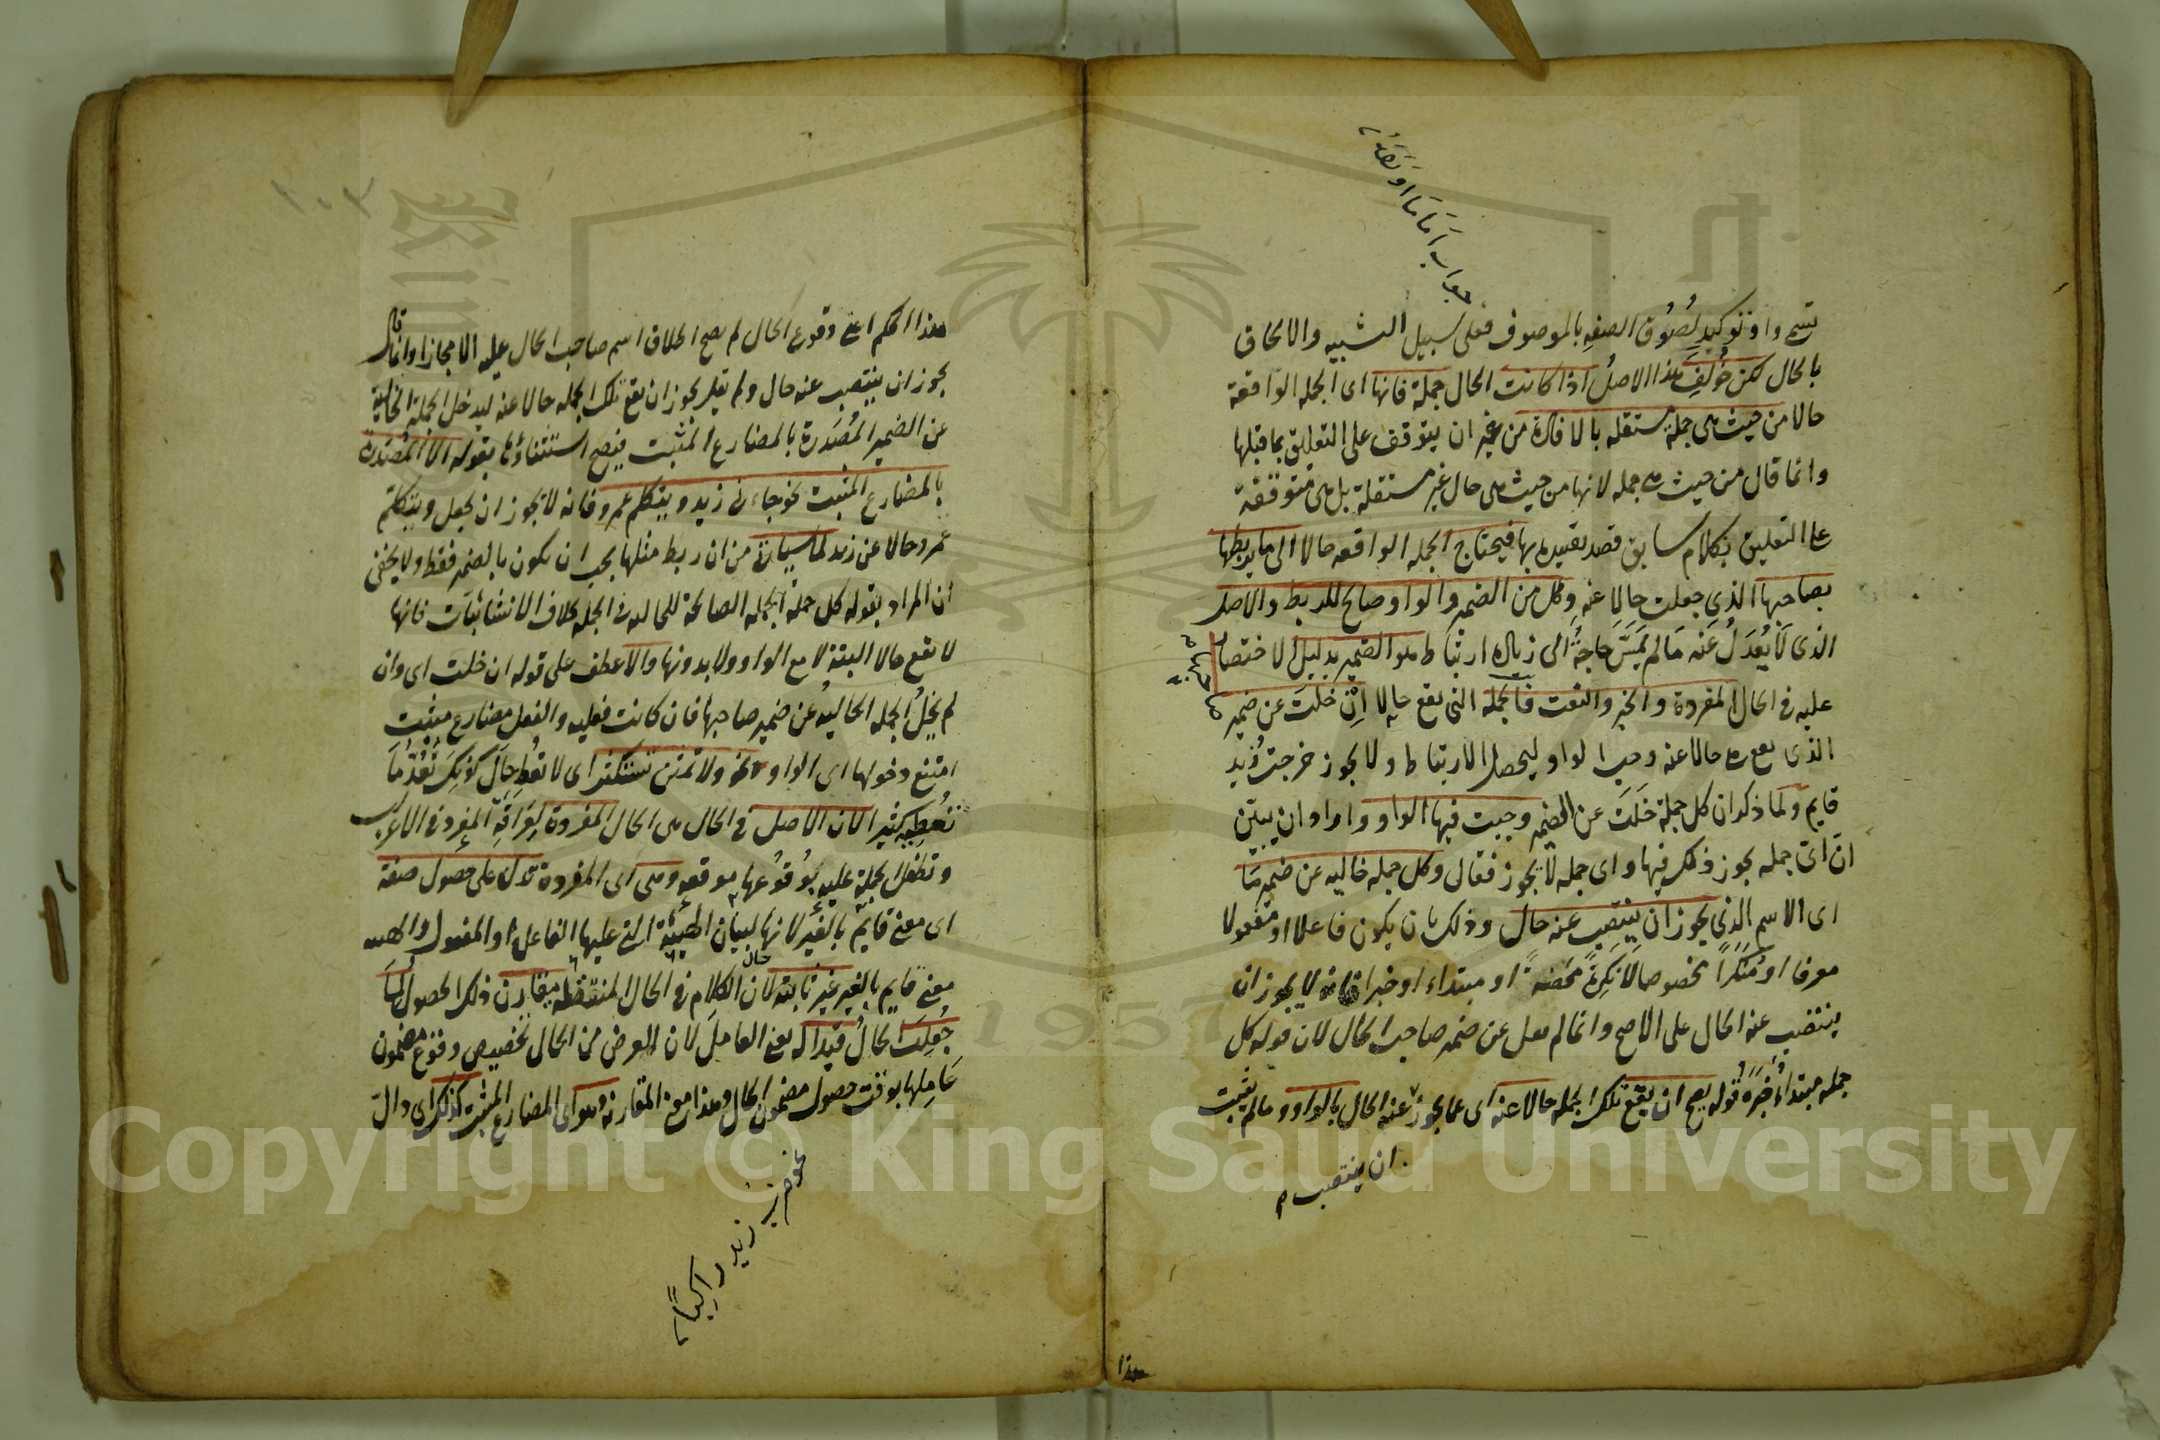 جواب اما ما او نصه
تسمى واو توكيد لصوق الصفة بالموصوف فعلى سبيل التشبيه والالحاق
بالحال لكن خُولِفَ هذا الاصلُ اذا كانت الحال جملة فانها اى الجمله الواقعة
حالا من حيث هى جملة مستقله بالافادة من غير ان يتوقف على التعليق بما قبلها
وانما قال من حيث هى جمله لانها من حيث هى حال غير مستقلة بل هى متوقفة
على التعليق بكلام سابق قصد تقييده بها فيحتاج الجمله الواقعه حالا الى ما يربطها
بصاحبها الذى جعلت حالا عنه وكل من الضمير والواو صالح للربط والاصل
الذى لا يُعْدَلُ عَنْه مالم تَمَسَّ حاجةٌ الى زيادة ارتباط هو الضمير بدليل الاختصار
عليه فى الحال المفردة والخبر والنعت فالجمله التى تقع حالا اِنْ خَلَتْ عن ضمير
صاحبها
الذى تقع هى حالا عنه وجب الواو ليحصل الارتباط ولا يجوز خرجت زيد
قايم ولما ذكر ان كل جملة خَلَت عن الضمير وجبت فيها الواو واراد ان يبين
ان اىّ جمله يجوز ذلك فيها واى جمله لا يجوز فقال وكل جمله خاليه عن ضمير ما
اى الاسم الذى يجوز ان ينتصب عنه حال وذلك بان يكون فاعلا او مفعولا
معرفا او مُنَكَّراً مخصوصا لا نَكِرةً مَحْضةً او مبتداء او خبرا فانه لا يجوز ان
ينتصب عنه الحال على الاصح وانما لم يقل عن ضمير صاحب الحال لان قوله كل
جمله مبتداءٌ وخَبَرُهُ قوله يصح ان تقع تلك الجمله حالا عنه اى عما يجوز عنه الحال بالواو ومالم يثبت
ان ينتصب
هذا
هذا الحكم اعنى وقوع الحال لم يصح اطلاق اسم صاحب الحال عليه الا مجازا وانما قال
يجوز ان ينتصب عنه حال ولم يقل يجوز ان تقع تلك الجمله حالا عنه ليدخل الجملة الخالية
عن الضمير المُصَدَّرة بالمضارع المثبت فيصح استثناؤها بقوله الا المُصَدَّرة
بالمضارع المثبت نحو جاءنى زيد ويتكلم عمرو فانه لا يجوز ان يجعل ويتكلم
عمرو حالا عن زيد لما سيأتى من ان ربط مثلها يجب ان يكون بالضمير فقط ولا يخفى
ان المراد بقوله كل جملة الجمله الصالحة للحاليه فى الجمله بخلاف الانشائيات فانها
لا تقع حالا البتة لا مع الواو ولا بدونها والا عطف على قوله ان خلت اى وان
لم يَخْلُ الجمله الحاليه عن ضمير صاحبها فان كانت فعليه والفعل مضارع مثبت
امتنع دخولها اى الواو نحو ولا تمنن تستكثر اى لا تُعْطِ حالَ كونك تَعُدُّ ما
تُعْطِيه كثيرا لان الاصل فى الحال هى الحال المفردة لعراقة المفرد فى الاعراب
وتطفل الجملة عليه بوُقُوعها موقعه وهى اى المفردة تدل على حصول صفة
اى معنى قايم بالغير لانها لبيان الهيئة التى عليها الفاعل او المفعول والهيئة
معنى قايم بالغير غير ثابتة لان الكلام فى الحال المنتقلة مقارن ذلك الحصول لما
حال
جُعِلَتْ الحالُ قيدا له يعنى العامل لان الغرض من الحال تخصيص وقوع مضمون
عَاملها بوقت حصول مضمون الحال وهذا معنى المقارنة وهو اى المضارع المثبت كذلك اى دال
نحو ضرب زيد راكباً